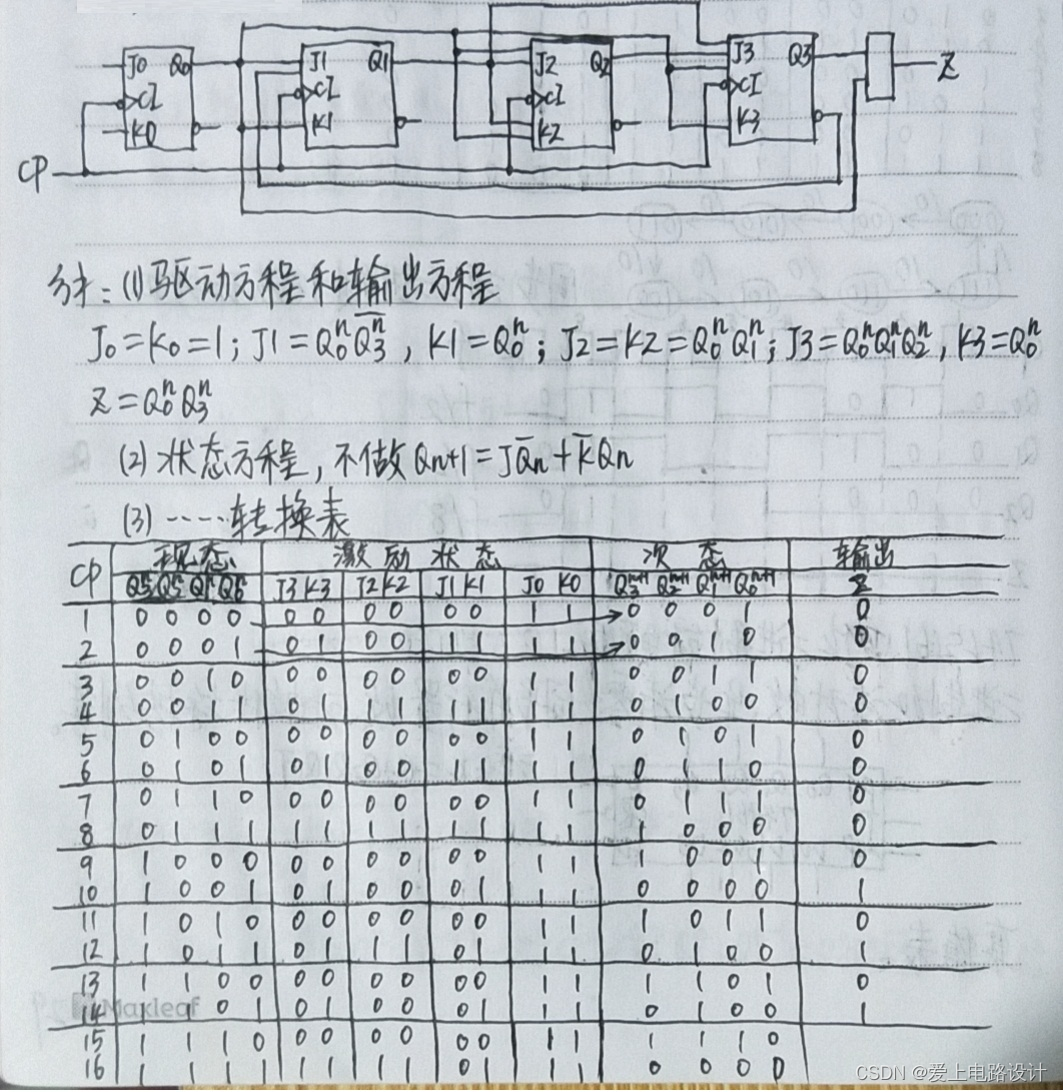 J0 Q0 J1 Q1 J2 Q2 J3 Q3 Z
CI CI CI CI
K0 K1 K2 K3
CP
(1)驱动方程和输出方程
J0=K0=1; J1=Q0ⁿQ̅3ⁿ, K1=Q0ⁿ; J2=K2=Q0ⁿQ1ⁿ; J3=Q0ⁿQ1ⁿQ2ⁿ, K3=Q0ⁿ
Z=Q0ⁿQ3ⁿ
(2)状态方程,不做Qn+1=JQ̅n+K̅Qn
(3)……转换表
CP 现态 激励状态 次态 输出
Q3ⁿ Q2ⁿ Q1ⁿ Q0ⁿ J3 K3 J2 K2 J1 K1 J0 K0 Q3ⁿ⁺¹ Q2ⁿ⁺¹ Q1ⁿ⁺¹ Q0ⁿ⁺¹ Z
1 0 0 0 0 0 0 0 0 0 0 1 1 0 0 0 1 0
2 0 0 0 1 0 1 0 0 1 1 1 1 0 0 1 0 0
3 0 0 1 0 0 0 0 0 0 0 1 1 0 0 1 1 0
4 0 0 1 1 0 1 1 1 1 1 1 1 0 1 0 0 0
5 0 1 0 0 0 0 0 0 0 0 1 1 0 1 0 1 0
6 0 1 0 1 0 1 0 0 1 1 1 1 0 1 1 0 0
7 0 1 1 0 0 0 0 0 0 0 1 1 0 1 1 1 0
8 0 1 1 1 1 1 1 1 1 1 1 1 1 0 0 0 0
9 1 0 0 0 0 0 0 0 0 0 1 1 1 0 0 1 0
10 1 0 0 1 0 1 0 0 0 1 1 1 0 0 0 0 1
11 1 0 1 0 0 0 0 0 0 0 1 1 1 0 1 1 0
12 1 0 1 1 0 1 1 1 0 1 1 1 0 1 0 0 1
13 1 1 0 0 0 0 0 0 0 0 1 1 1 1 0 1 0
14 1 1 0 1 0 1 0 0 0 1 1 1 0 1 0 0 1
15 1 1 1 0 0 0 0 0 0 0 1 1 1 1 1 0
16 1 1 1 1 1 1 1 1 0 1 1 1 0 0 0 0
Maxleaf
CSDN @爱上电路设计